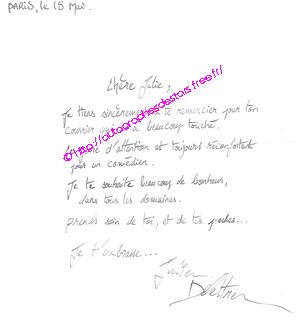 PARIS, le 15 Mai.
Chère Julie,
Je tiens sincèrement à te remercier pour ton
courrier qui m'a beaucoup touché.
d'attention est toujours réconfortant
pour un comédien.
Je te souhaite beaucoup de bonheur,
dans tous les domaines.
prends soin de toi, et de tes proches...
Je t'embrasse...
©http://autographesdestars.free.fr/